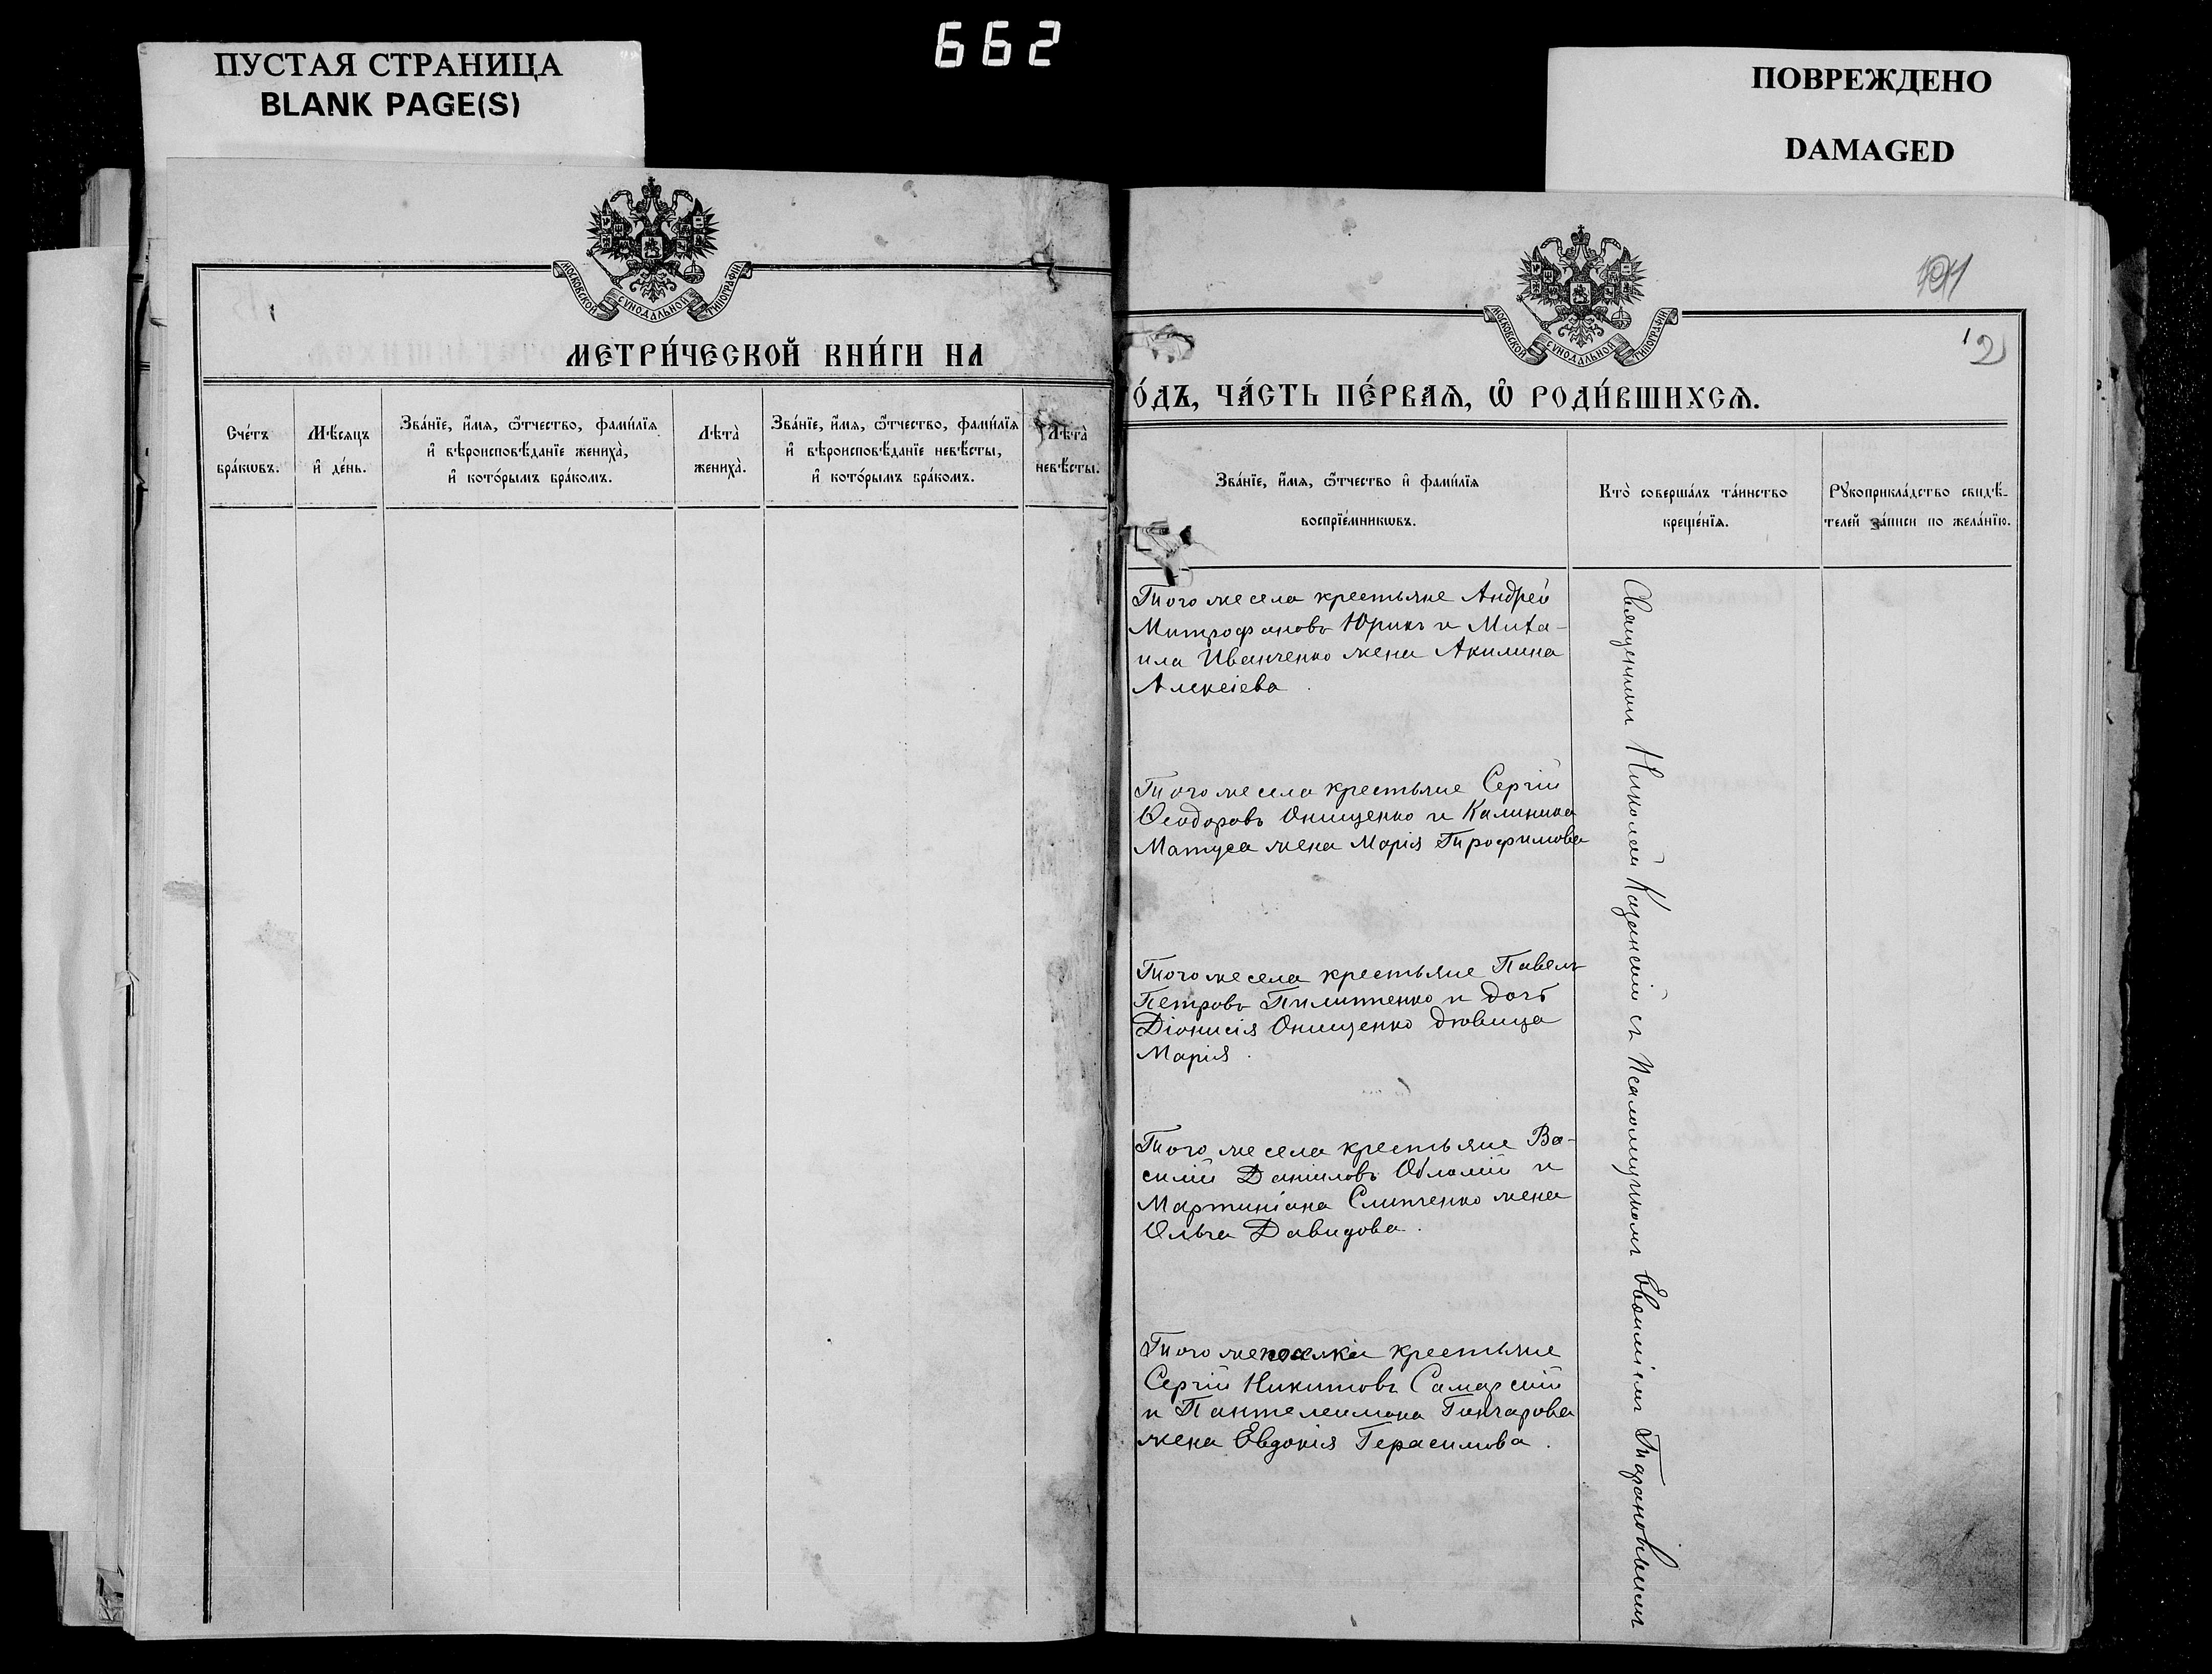 662
ПУСТАЯ СТРАНИЦА
BLANK PAGE(S)
ПОВРЕЖДЕНО
DAMAGED
МОСКОВСКОЙ СѴНОДАЛЬНОЙ ТИПОГРАФІИ
МЕТРИ́ЧЕСКОЙ КНИ́ГИ НА
Сче́тъ бра́кѡвъ.
Мѣ́сяцъ и҆ де́нь.
Зва́нїе, и҆́мѧ, ѻ҆́тчество, фами́лїѧ
и҆ вѣроисповѣ́данїе жениха̀,
и҆ кото́рымъ бра́комъ.
Лѣта̀
жениха̀.
Зва́нїе, и҆́мѧ, ѻ҆́тчество, фами́лїѧ
и҆ вѣроисповѣ́данїе невѣ́сты,
и҆ кото́рымъ бра́комъ.
Лѣта̀
невѣ́сты.
МОСКОВСКОЙ СѴНОДАЛЬНОЙ ТИПОГРАФІИ
2
О́ДЪ, ЧА́СТЬ ПЕ́РВАѦ, Ѡ҆ РОДИ́ВШИХСѦ.
Зва́нїе, и҆́мѧ, ѻ҆́тчество и҆ фами́лїѧ
воспрїе́мникѡвъ.
Кто̀ соверша́лъ та́инство
креще́нїѧ.
Рꙋкоприкла́дство свидѣ́-
телей за́писи по жела́нїю.
Того же села крестьяне Андрей
Митрофановъ Юрикъ и Миха-
ила Иванченко жена Акилина
Алексіева.
Того же села крестьяне Сергій
Ѳеодоровъ Онищенко и Калиника
Матуса жена Марія Трофимова
Того же села крестьяне Павелъ
Петровъ Пилипенко и дочь
Діонисія Онищенко дѣвица
Марія.
Того же села крестьяне Ва-
силій Даніиловъ Обламій и
Мартиніана Слипченко жена
Ольга Давидова.
Того же поселка крестьяне
Сергій Никитовъ Самарскій
и Пантелеимона Гончарова
жена Евдокія Герасимова.
Священникъ Николай Казанскій съ Псаломщикомъ Евѳиміемъ Тарановымъ